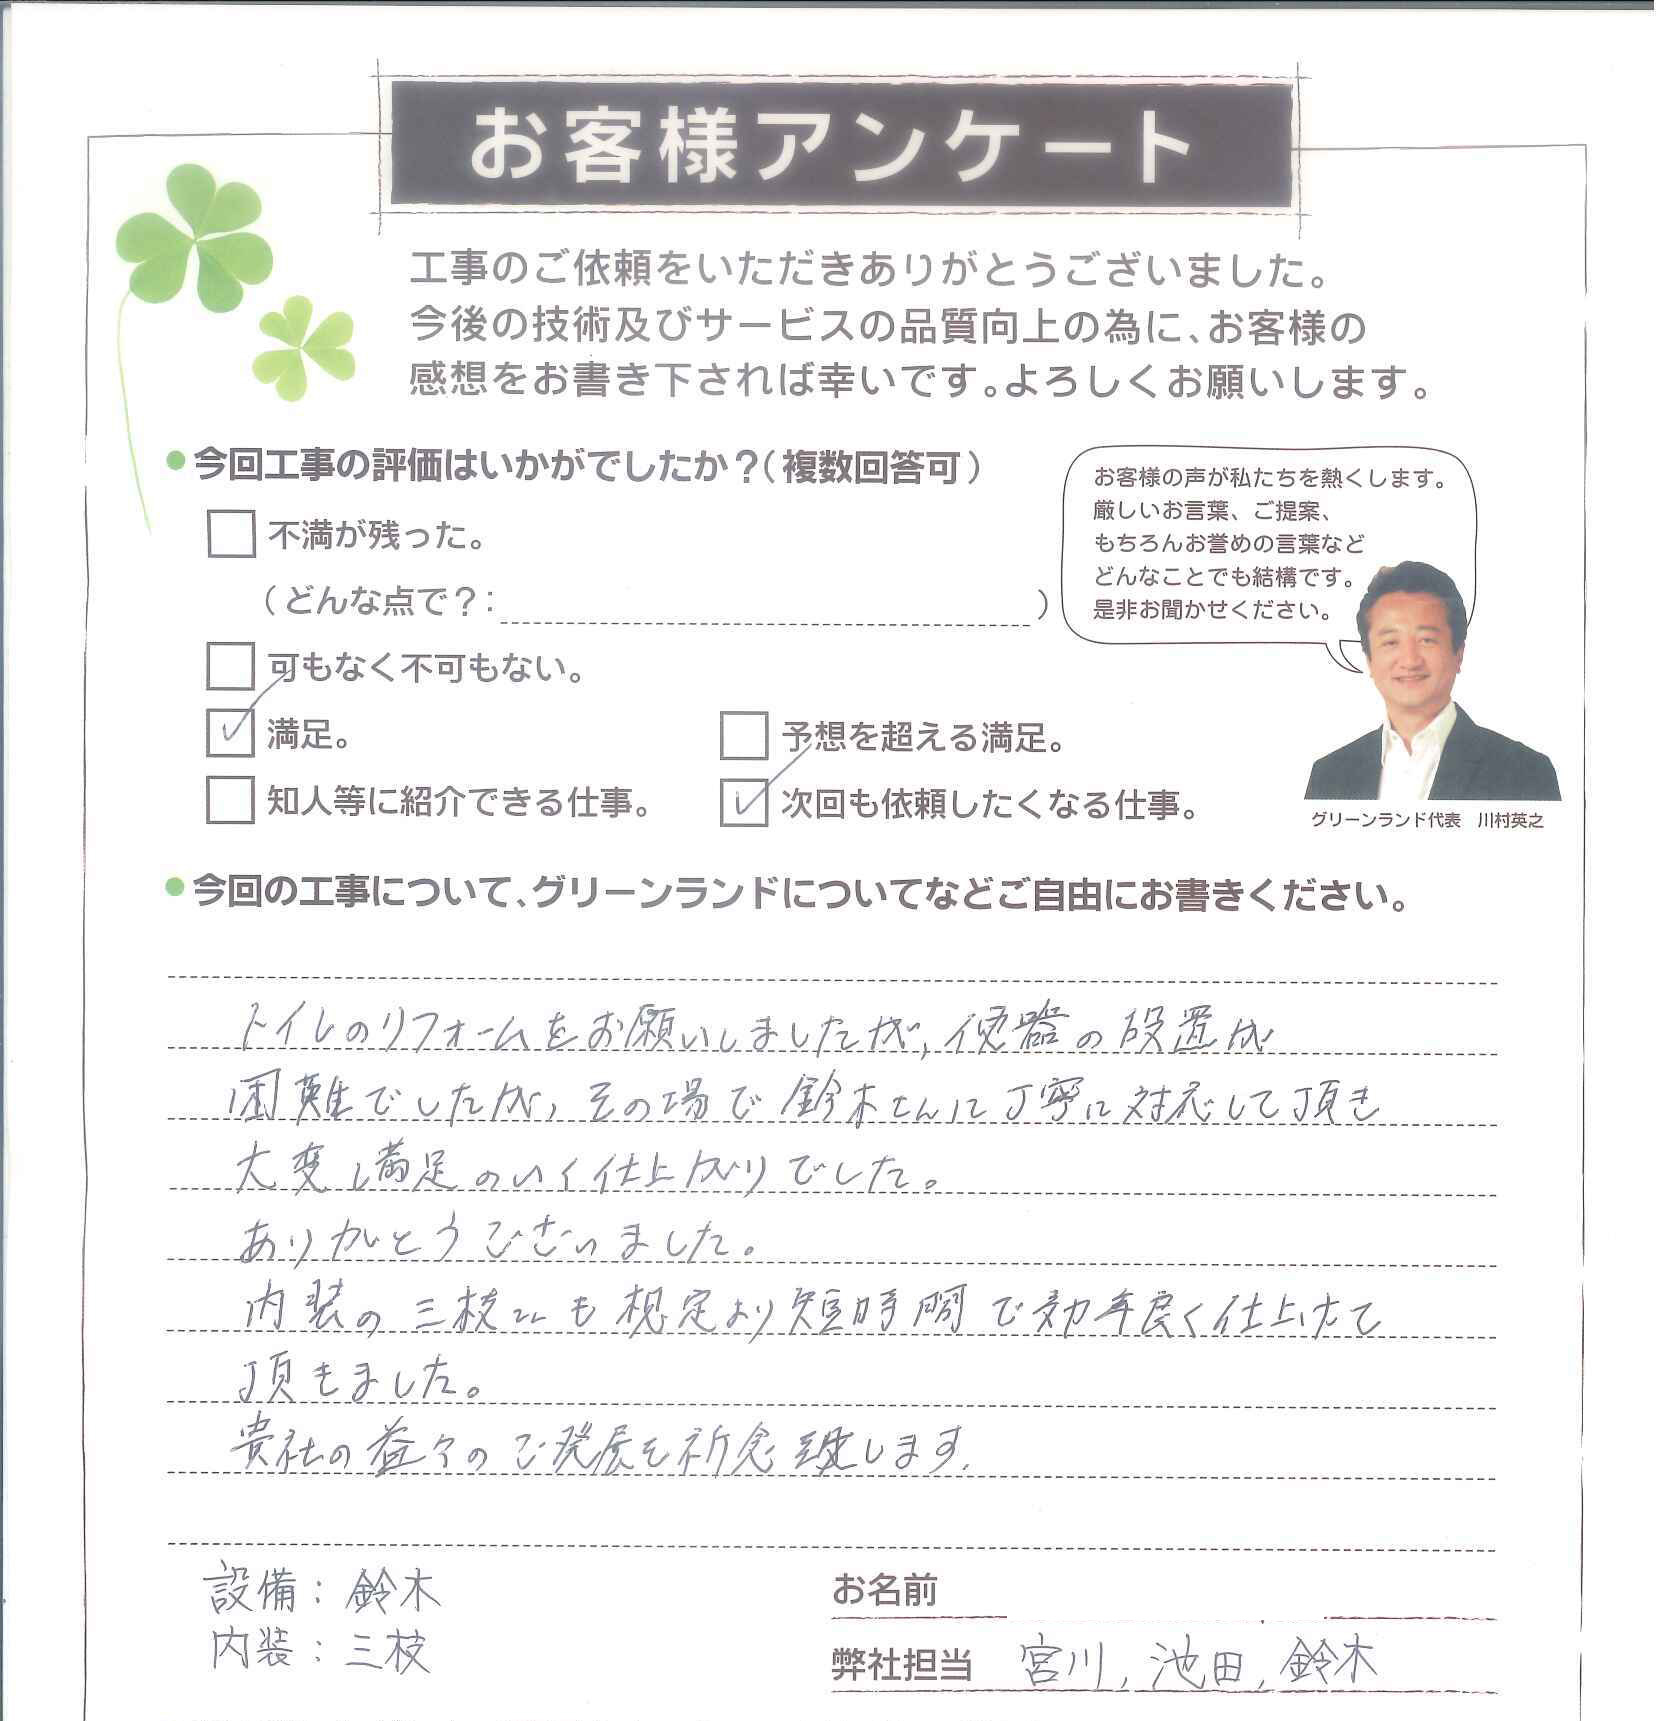 お客様アンケート
工事のご依頼をいただきありがとうございました。
今後の技術及びサービスの品質向上の為に、お客様の
感想をお書き下されば幸いです。よろしくお願いします。
今回工事の評価はいかがでしたか？（複数回答可）
不満が残った。
（どんな点で？： ）
可もなく不可もない。
満足。
予想を超える満足。
知人等に紹介できる仕事。
次回も依頼したくなる仕事。
お客様の声が私たちを熱くします。
厳しいお言葉、ご提案、
もちろんお誉めの言葉など
どんなことでも結構です。
是非お聞かせください。
グリーンランド代表 川村英之
今回の工事について、グリーンランドについてなどご自由にお書きください。
トイレのリフォームをお願いしましたが、便器の設置が
困難でしたが、その場で鈴木さんに丁寧に対応して頂き
大変満足のいく仕上がりでした。
ありがとうございました。
内装の三枝さんも想定より短時間で効率良く仕上げて
頂きました。
貴社の益々のご発展を祈念致します。
設備：鈴木
内装：三枝
お名前
弊社担当 宮川，池田，鈴木